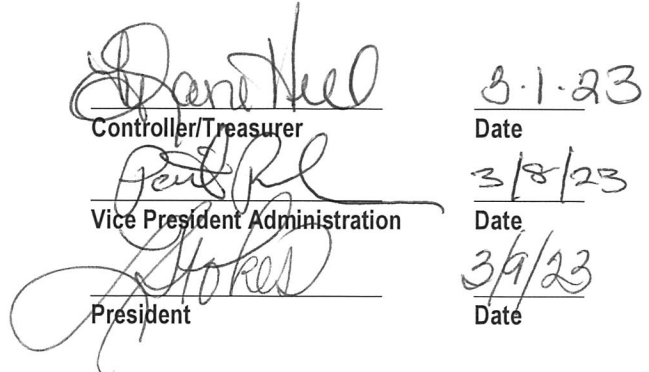 3.1.23
Controller/Treasurer Date
3/8/23
Vice President Administration Date
Stokes 3/9/23
President Date